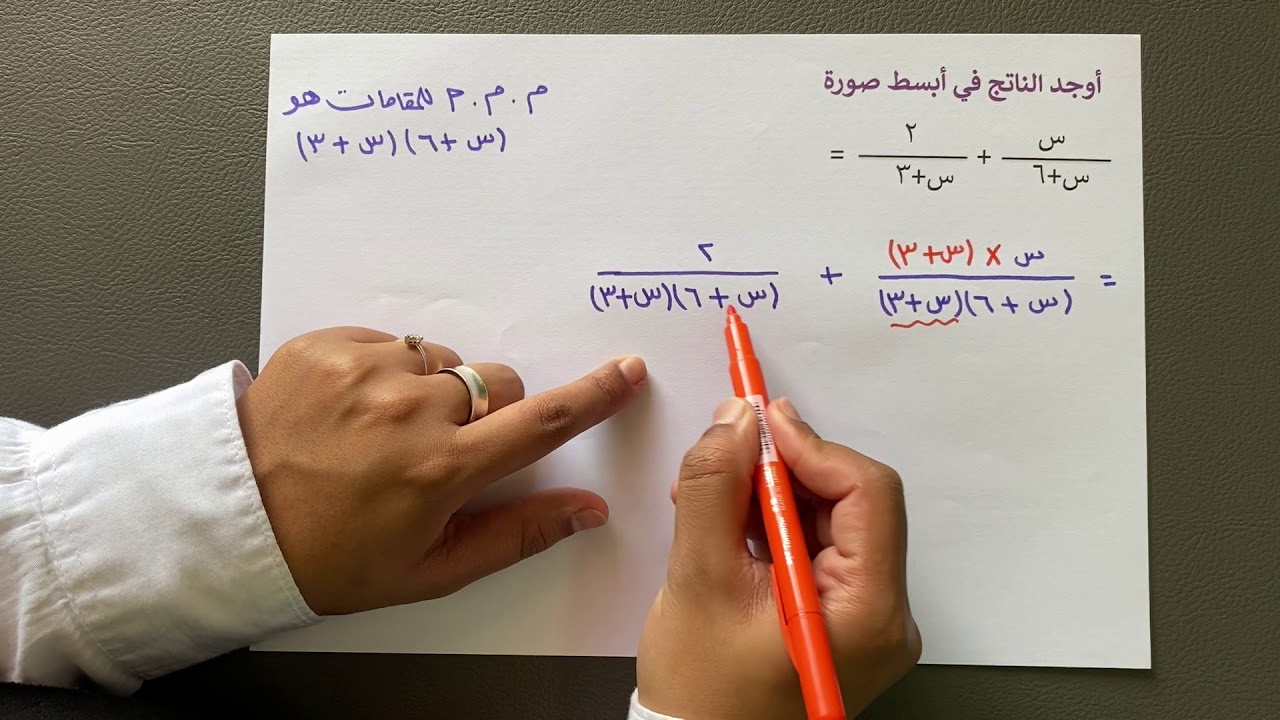 أوجد الناتج في أبسط صورة
س/(س+٦) + ٢/(س+٣) =
م.م.م للمقامات هو
(س+٦)(س+٣)
= س × (س+٣)/(س+٦)(س+٣) + ٢/(س+٦)(س+٣)